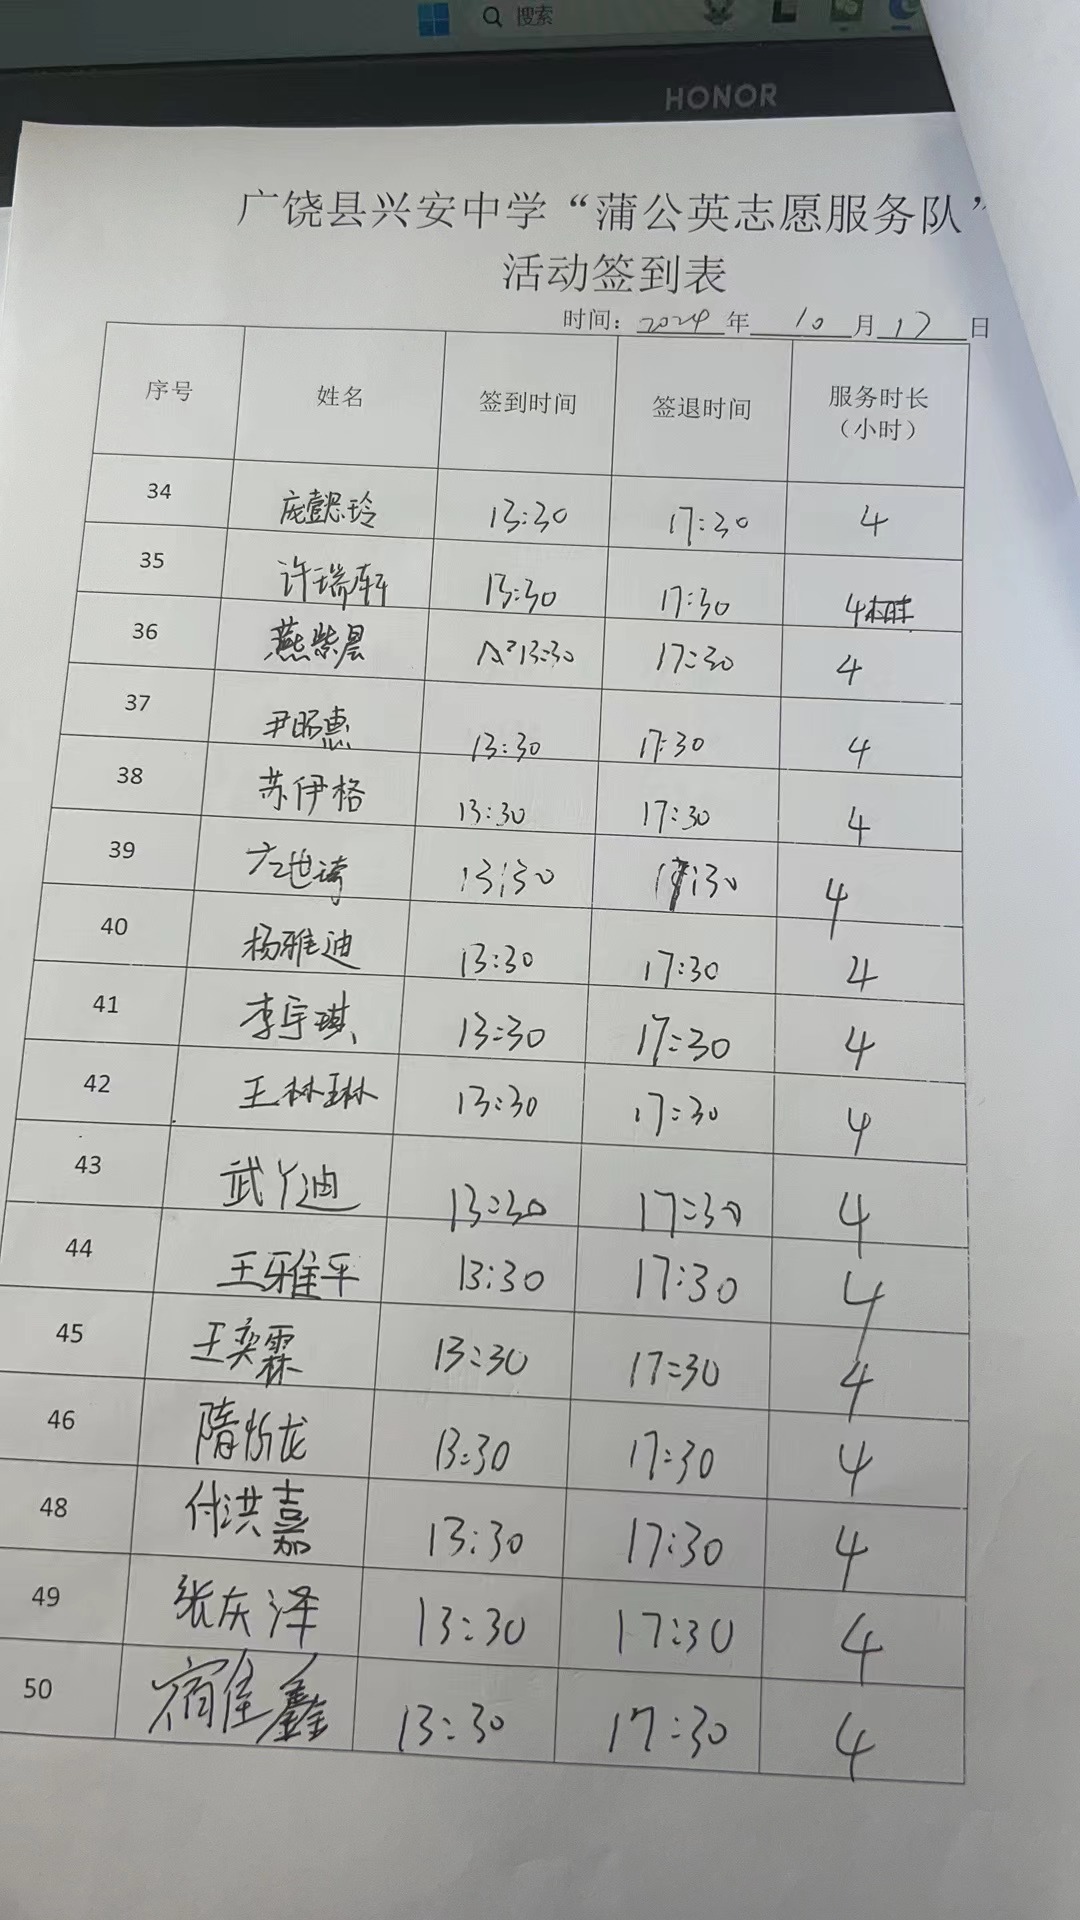 搜索
HONOR
广饶县兴安中学“蒲公英志愿服务队”
活动签到表
时间：2024年10月17日
序号 姓名 签到时间 签退时间 服务时长（小时）
34 庞懿玲 13:30 17:30 4
35 许瑞轩 13:30 17:30 4
36 燕紫晨 13:30 17:30 4
37 尹昭惠 13:30 17:30 4
38 苏伊格 13:30 17:30 4
39 13:30 17:30 4
40 杨雅迪 13:30 17:30 4
41 李宇琪 13:30 17:30 4
42 王林琳 13:30 17:30 4
43 武丫迪 13:30 17:30 4
44 王雅平 13:30 17:30 4
45 王奕霖 13:30 17:30 4
46 隋忻龙 13:30 17:30 4
48 付洪嘉 13:30 17:30 4
49 张庆泽 13:30 17:30 4
50 宿佳鑫 13:30 17:30 4